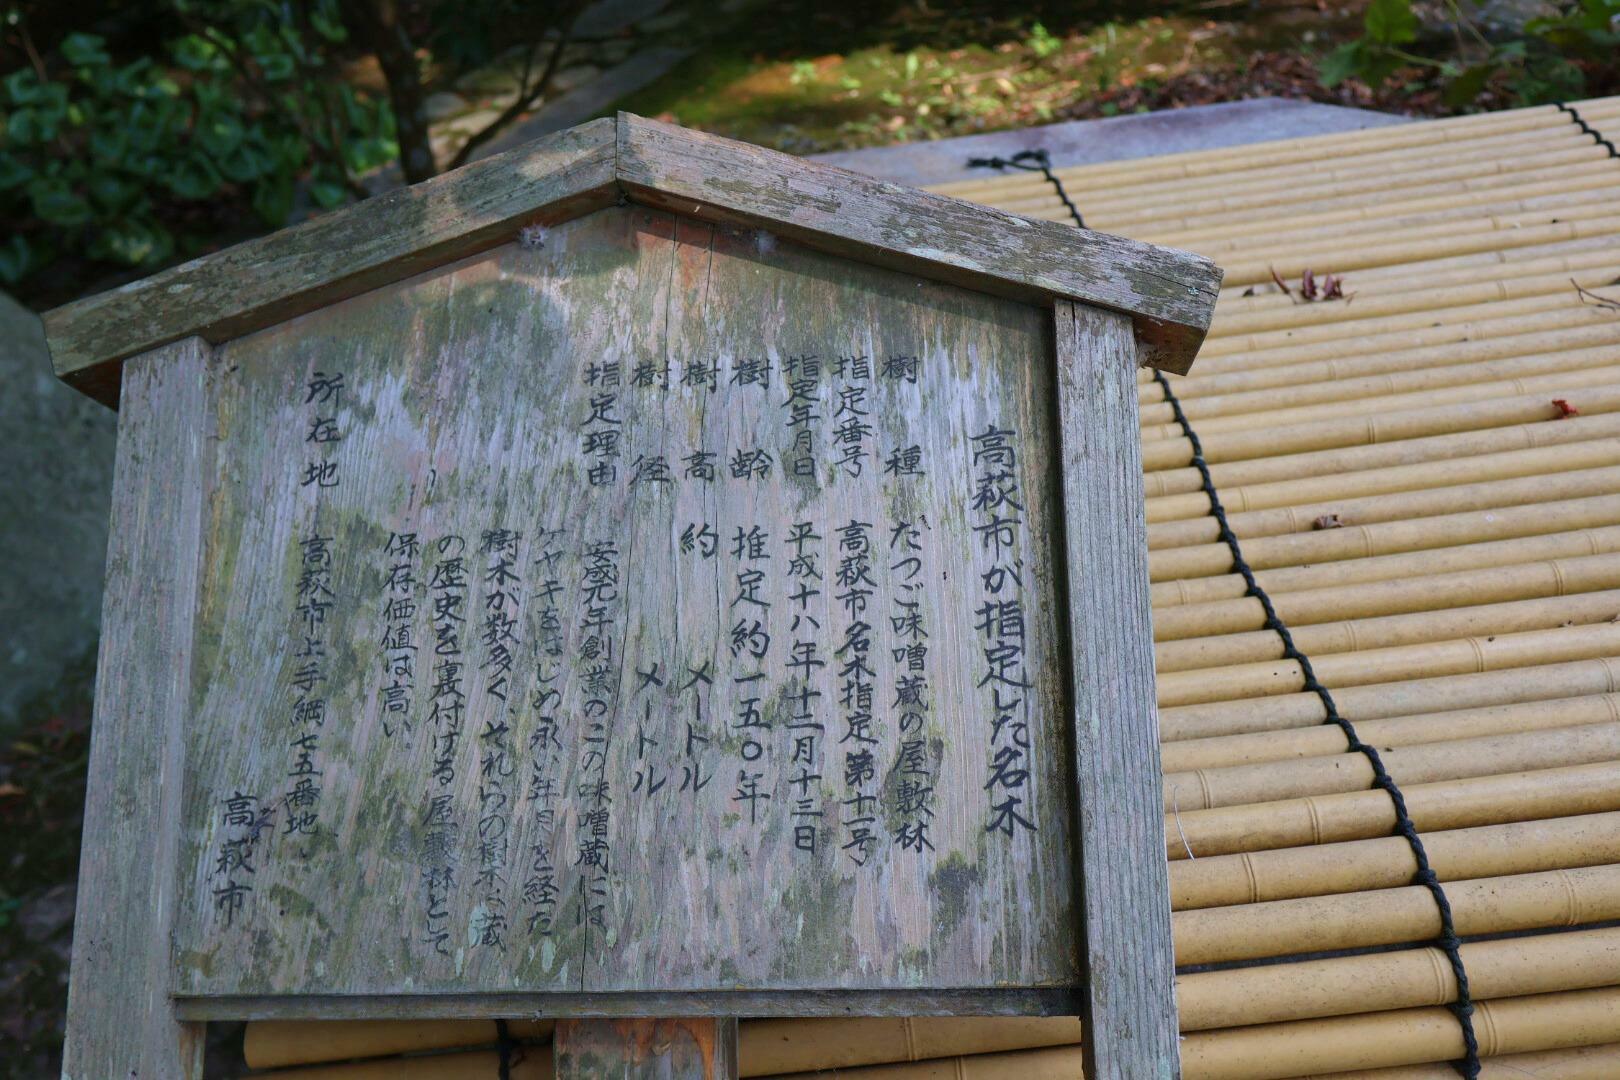 高萩市が指定した名木
樹種 たつご味噌蔵の屋敷林
指定番号 高萩市名木指定第十一号
指定年月日 平成十八年十二月十三日
樹齢 推定約一五〇年
樹高 約 メートル
樹径 メートル
指定理由 安政元年創業のこの味噌蔵には
ケヤキをはじめ永い年月を経た
樹木が数多く、それらの樹木は蔵
の歴史を裏付ける屋敷林として
保存価値は高い
所在地 高萩市上手綱七五番地
高萩市